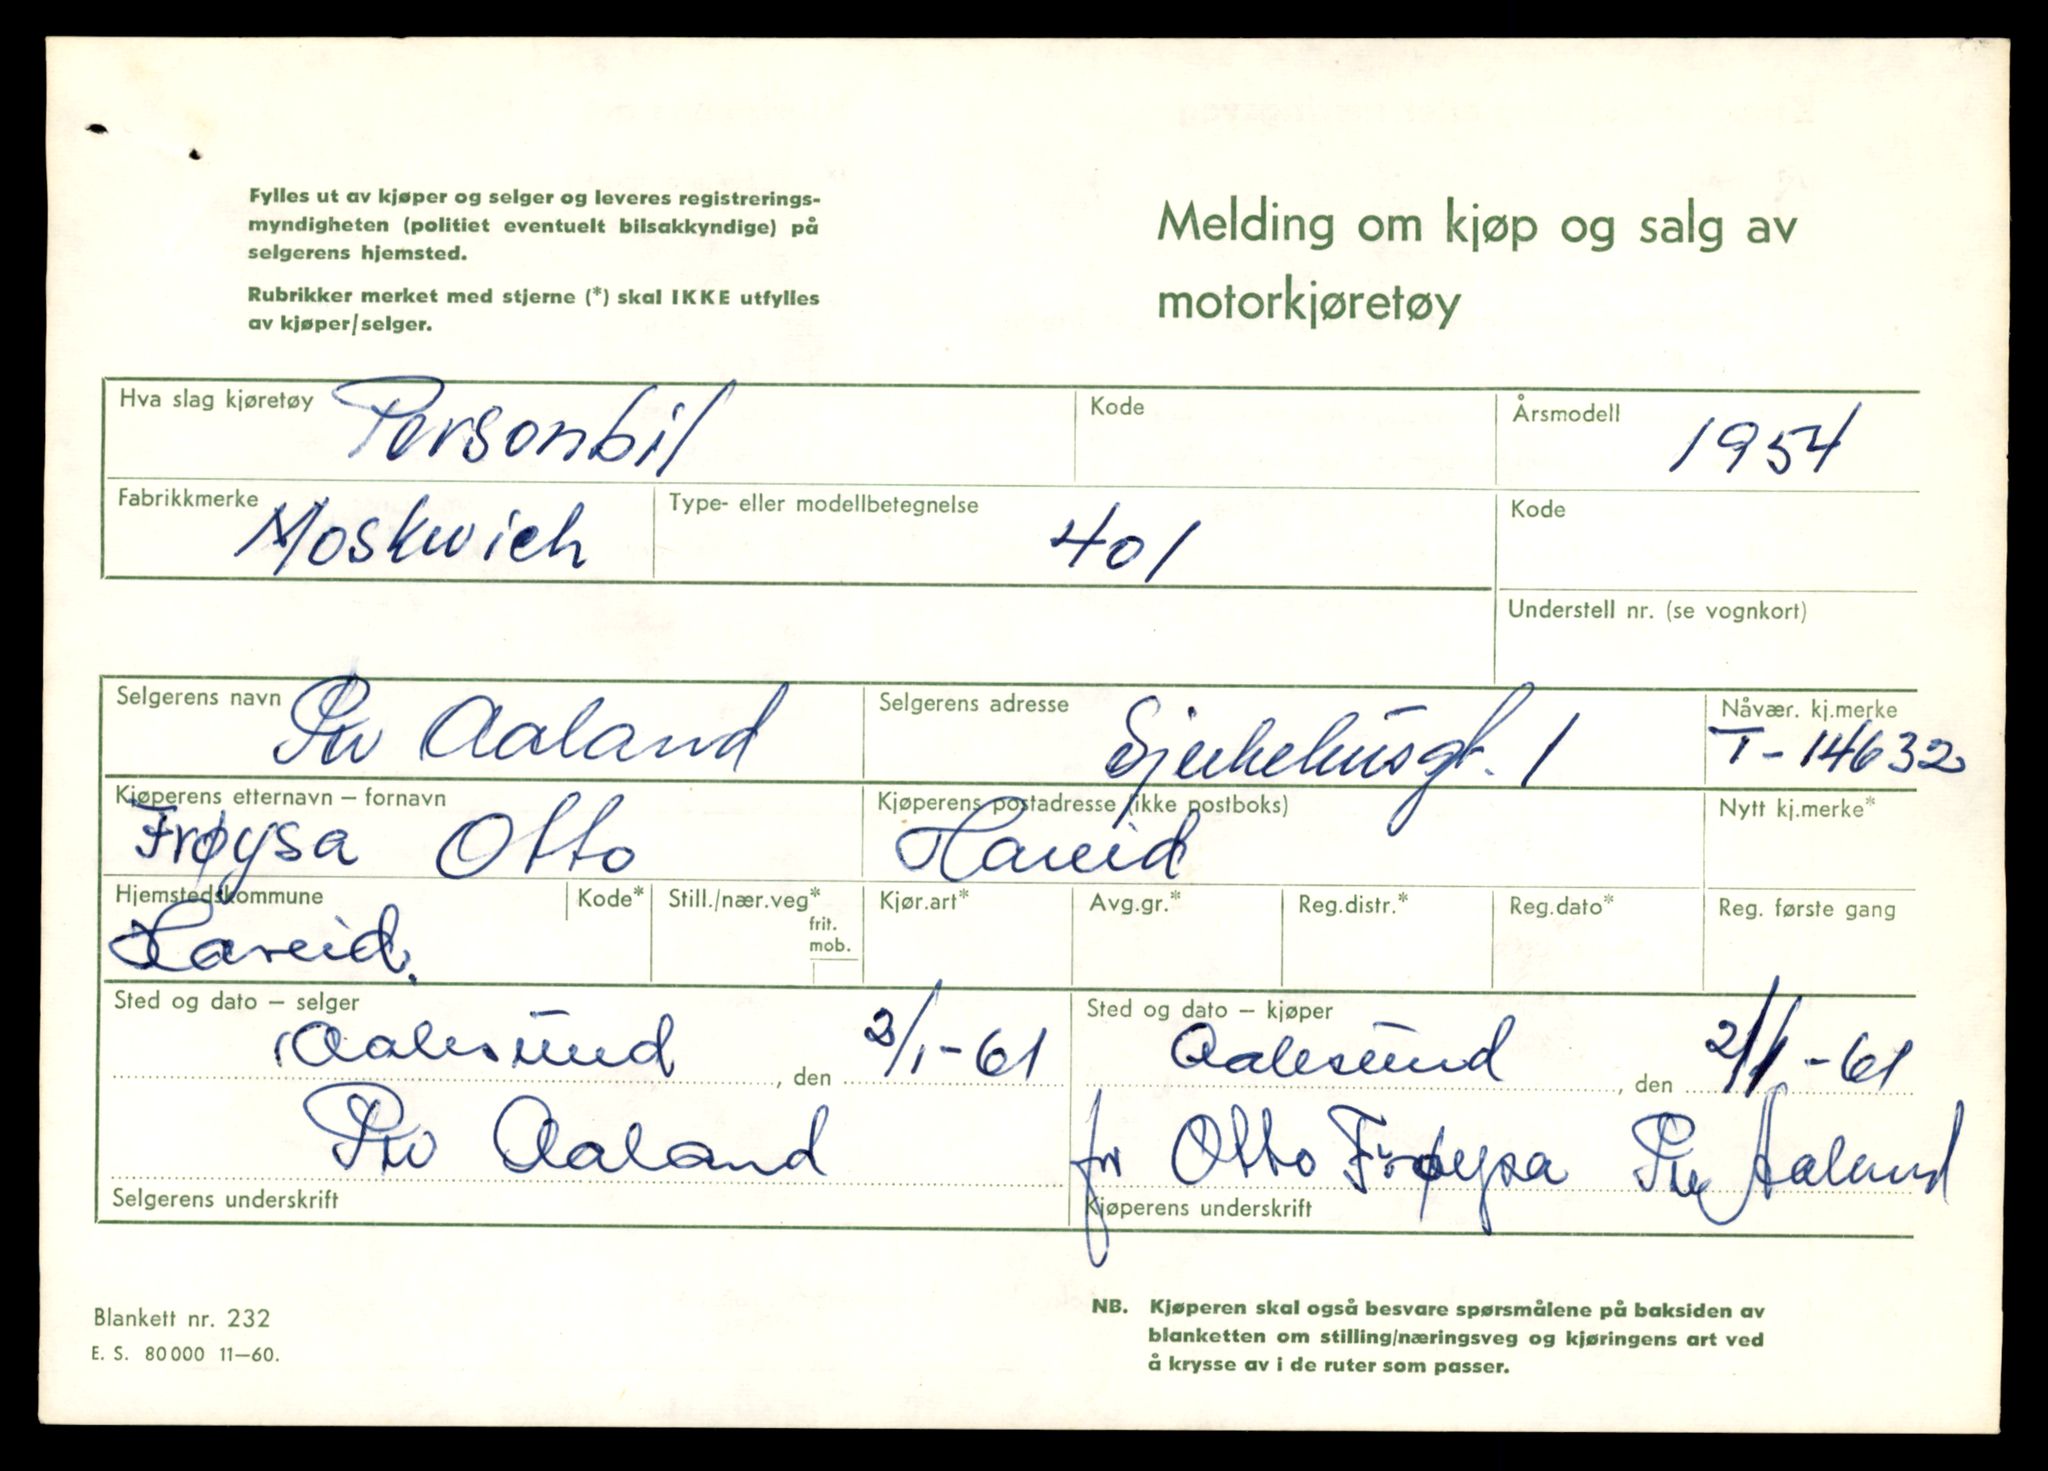 Fylles ut av kjøper og selger og leveres registrerings-
myndigheten (politiet eventuelt bilsakkyndige) på
selgerens hjemsted.
Rubrikker merket med stjerne (*) skal IKKE utfylles
av kjøper/selger.
Melding om kjøp og salg av
motorkjøretøy
Hva slag kjøretøy Personbil
Kode
Årsmodell 1954
Fabrikkmerke Moskwich
Type- eller modellbetegnelse 401
Kode
Understell nr. (se vognkort)
Selgerens navn Per Aaland
Selgerens adresse Sjukehusgt. 1
Nåvær. kj.merke
T-14632
Kjøperens etternavn – fornavn
Frøysa Otto
Kjøperens postadresse (ikke postboks)
Hareid
Nytt kj.merke*
Hjemstedskommune
Hareid.
Kode*
Still./nær.veg*
frit.
mob.
Kjør.art*
Avg.gr.*
Reg.distr.*
Reg.dato*
Reg. første gang
Sted og dato – selger
Aalesund, den 2/1-61
Per Aaland
Selgerens underskrift
Sted og dato – kjøper
Aalesund, den 2/1-61
for Otto Frøysa Per Aaland
Kjøperens underskrift
Blankett nr. 232
E. S. 80000 11–60.
NB. Kjøperen skal også besvare spørsmålene på baksiden av
blanketten om stilling/næringsveg og kjøringens art ved
å krysse av i de ruter som passer.